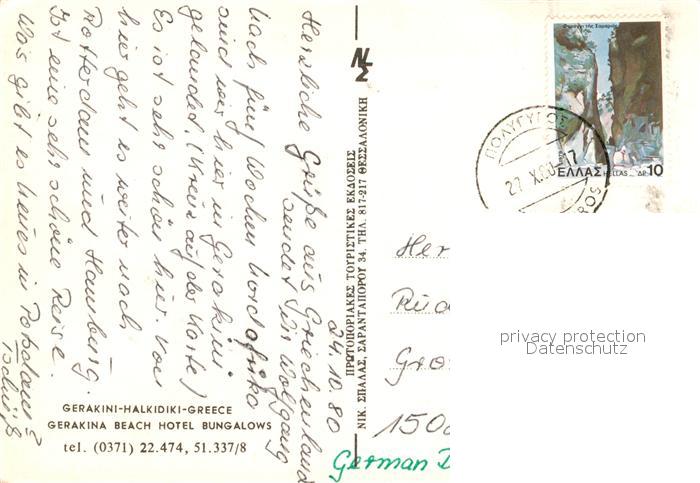 Herzliche Grüße aus Griechenland
sendet Dir Wolfgang
24.10.80
Nach fünf Wochen Nordafrika
sind wir hier in Gerakini
gelandet. (Kreuz auf der Karte)
Es ist sehr schön hier. Von
hier geht es weiter nach
Rotterdam und Hamburg.
Ist eine sehr schöne Reise.
Was gibt es neues in Potsdam?
Tschüß
GERAKINI-HALKIDIKI-GREECE
GERAKINA BEACH HOTEL BUNGALOWS
tel. (0371) 22.474, 51.337/8
ΠΡΩΤΟΠΟΡΙΑΚΕΣ ΤΟΥΡΙΣΤΙΚΕΣ ΕΚΔΟΣΕΙΣ
ΝΙΚ. ΣΙΒΑΛΑΣ, ΣΑΡΑΝΤΑΠΟΡΟΥ 34, ΤΗΛ. 817-217 ΘΕΣΣΑΛΟΝΙΚΗ
Φαράγγι τῆς Σαμαριᾶς
ΕΛΛΑΣ HELLAS ΔΡ. 10
ΠΟΛΥΓΥΡΟΣ
27 X 80 17
Her
Rüd
Geo
150
German D
privacy protection
Datenschutz